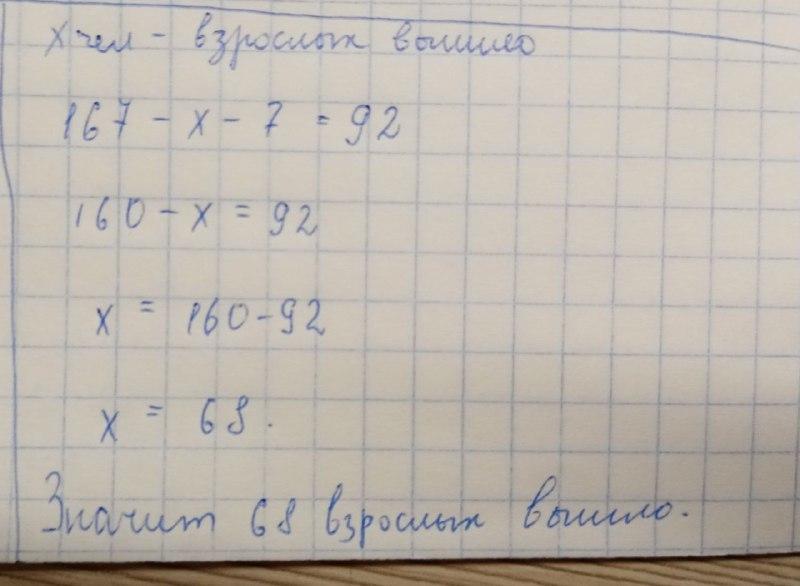 х чел - взрослых вышло
167 - х - 7 = 92
160 - х = 92
х = 160 - 92
х = 68.
Значит 68 взрослых вышло.